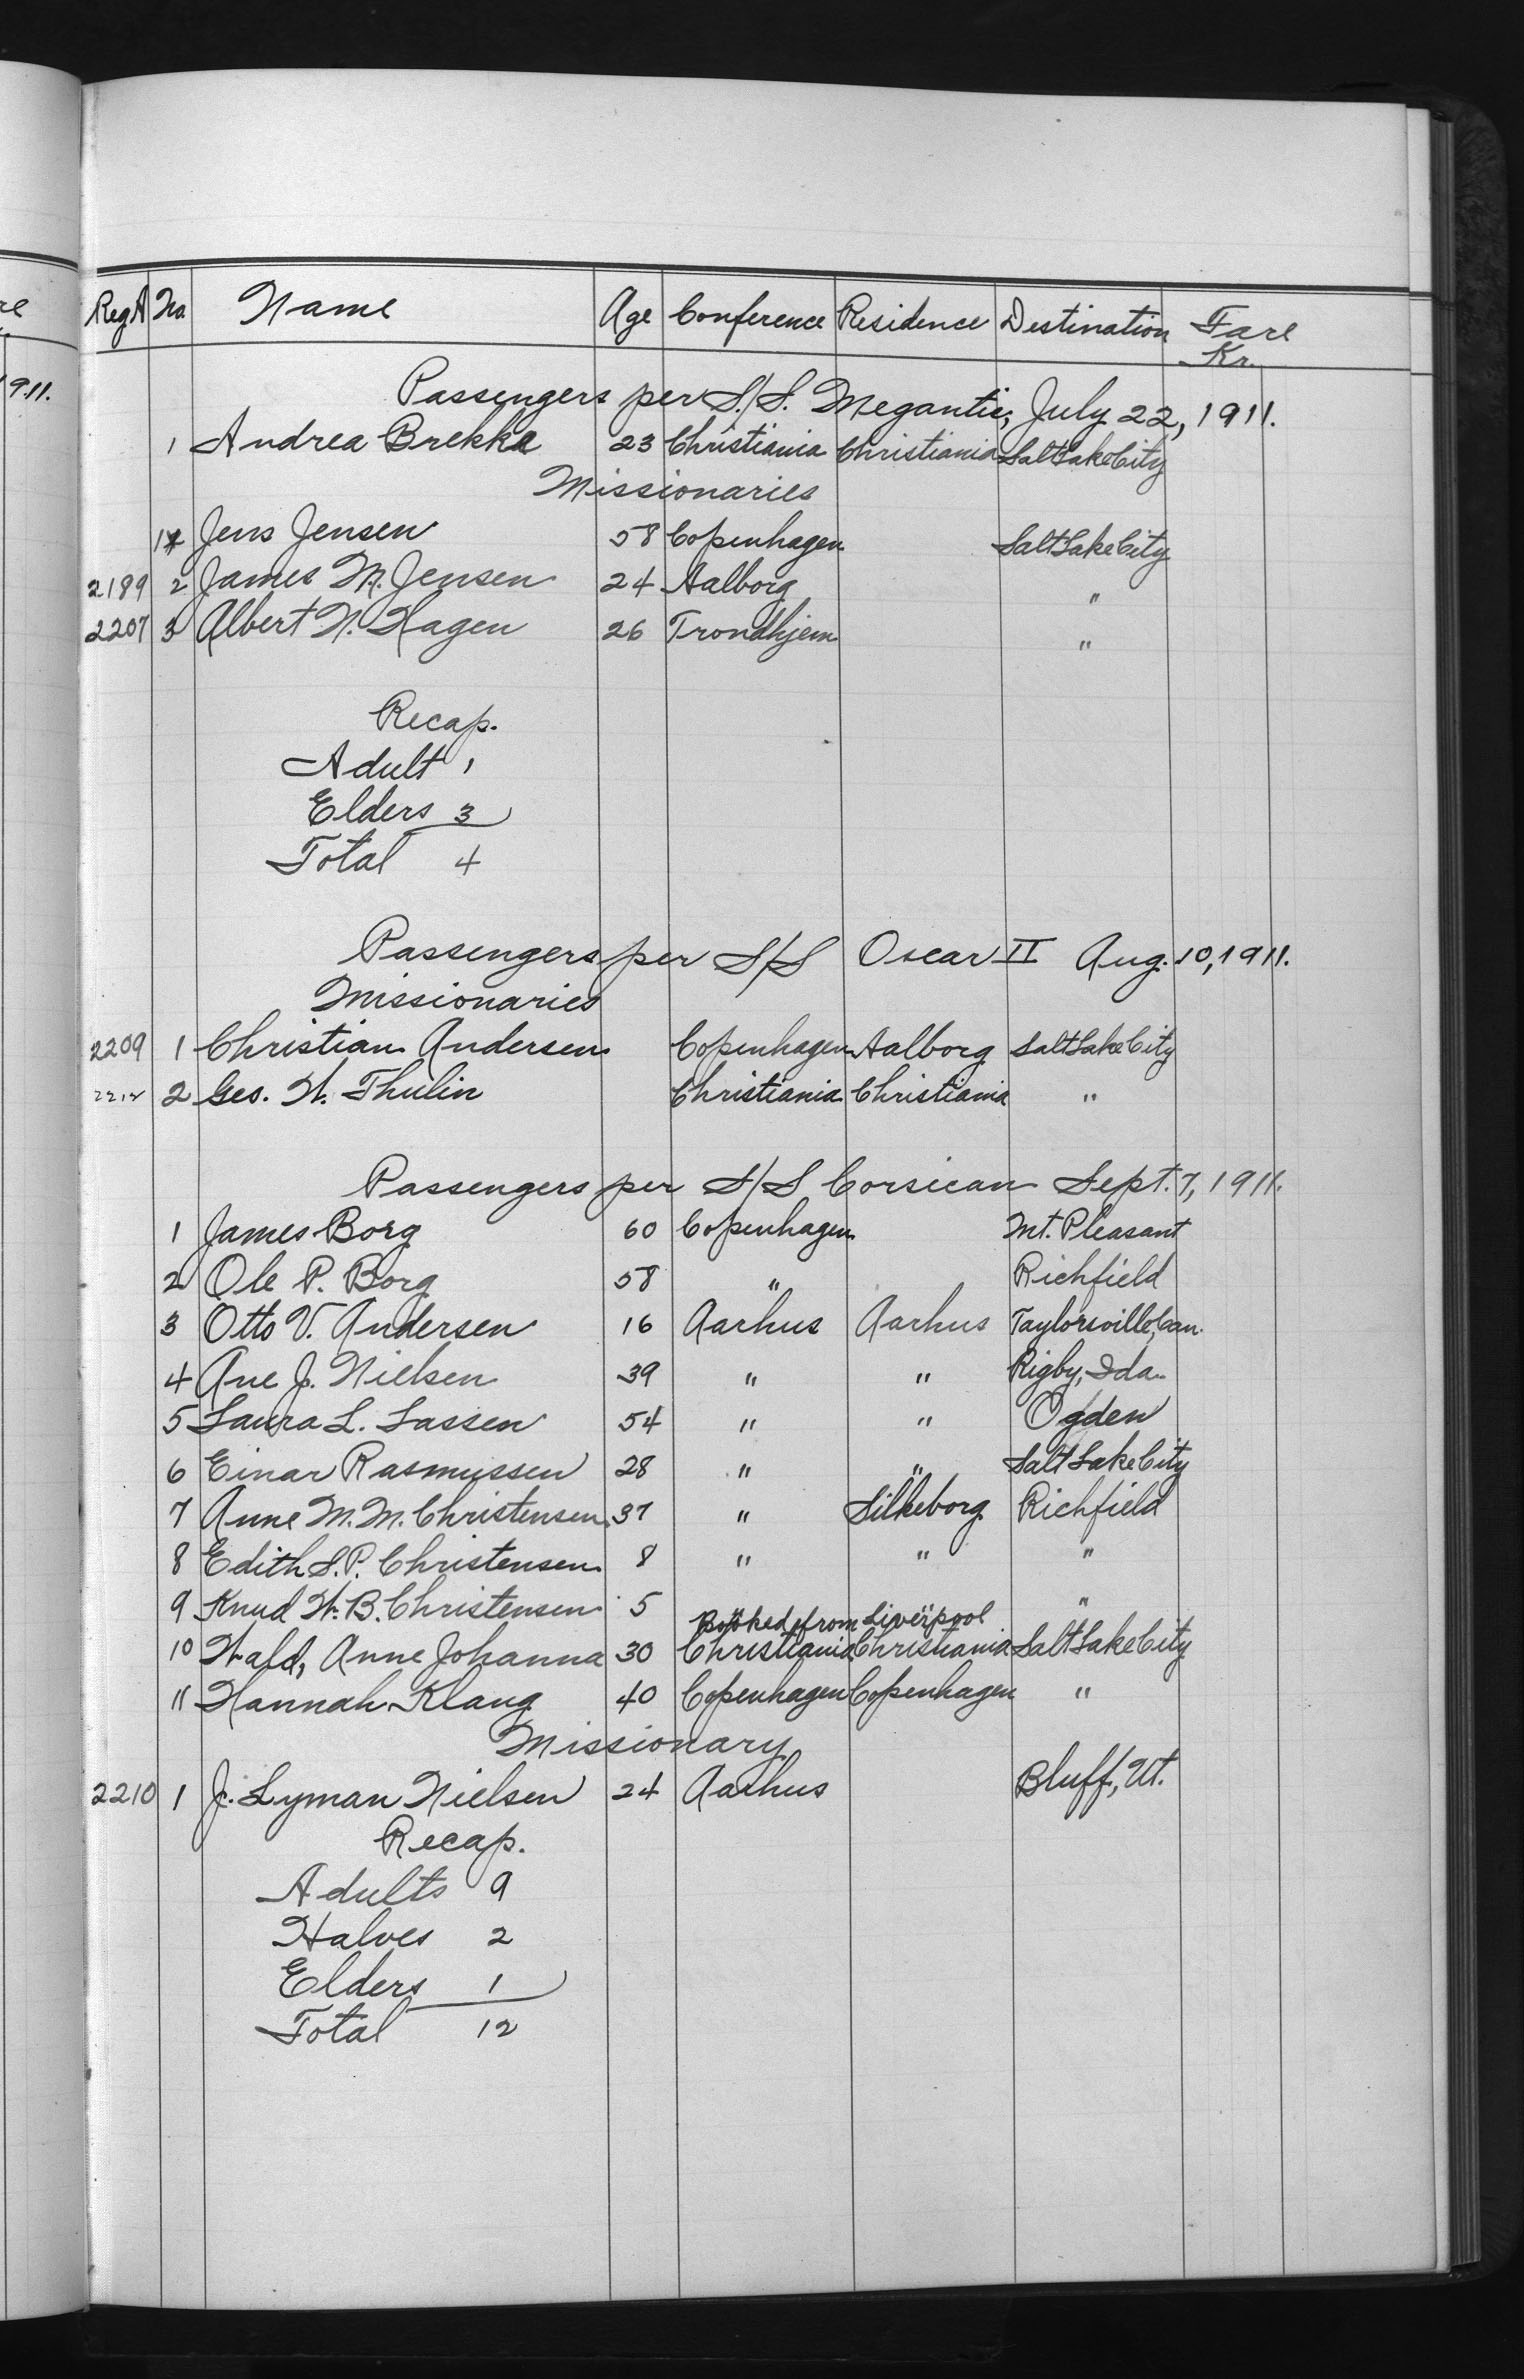 re
1911.
Reg A No. Name Age Conference Residence Destination Fare
Kr.
Passengers per S./S. Megantic, July 22, 1911.
1 Andrea Brekke 23 Christiania Christiania Salt Lake City
Missionaries
1 Jens Jensen 58 Copenhagen Salt Lake City
2189 2 James M. Jensen 24 Aalborg "
2207 3 Albert N. Hagen 26 Trondhjem "
Recap.
Adult 1
Elders 3
Total 4
Passengers per S/S Oscar II Aug. 10, 1911.
Missionaries
2209 1 Christian Andersen Copenhagen Aalborg Salt Lake City
2 Geo. W. Thulin Christiania Christiania "
Passengers per S/S Corsican Sept. 7, 1911.
1 James Borg 60 Copenhagen Mt. Pleasant
2 Ole P. Borg 58 " Richfield
3 Otto V. Andersen 16 Aarhus Aarhus Taylorsville, Can.
4 Ane J. Nielsen 39 " " Rigby, Ida.
5 Laura L. Lassen 54 " " Ogden
6 Einar Rasmussen 28 " " Salt Lake City
7 Anne M. M. Christensen 37 " Silkeborg Richfield
8 Edith S. P. Christensen 8 " " "
9 Knud W. B. Christensen 5 " " "
Booked from Liverpool
10 Wald, Anne Johanna 30 Christiania Christiania Salt Lake City
11 Hannah Klang 40 Copenhagen Copenhagen "
Missionary
2210 1 J. Lyman Nielsen 24 Aarhus Bluff, Ut.
Recap.
Adults 9
Halves 2
Elders 1
Total 12